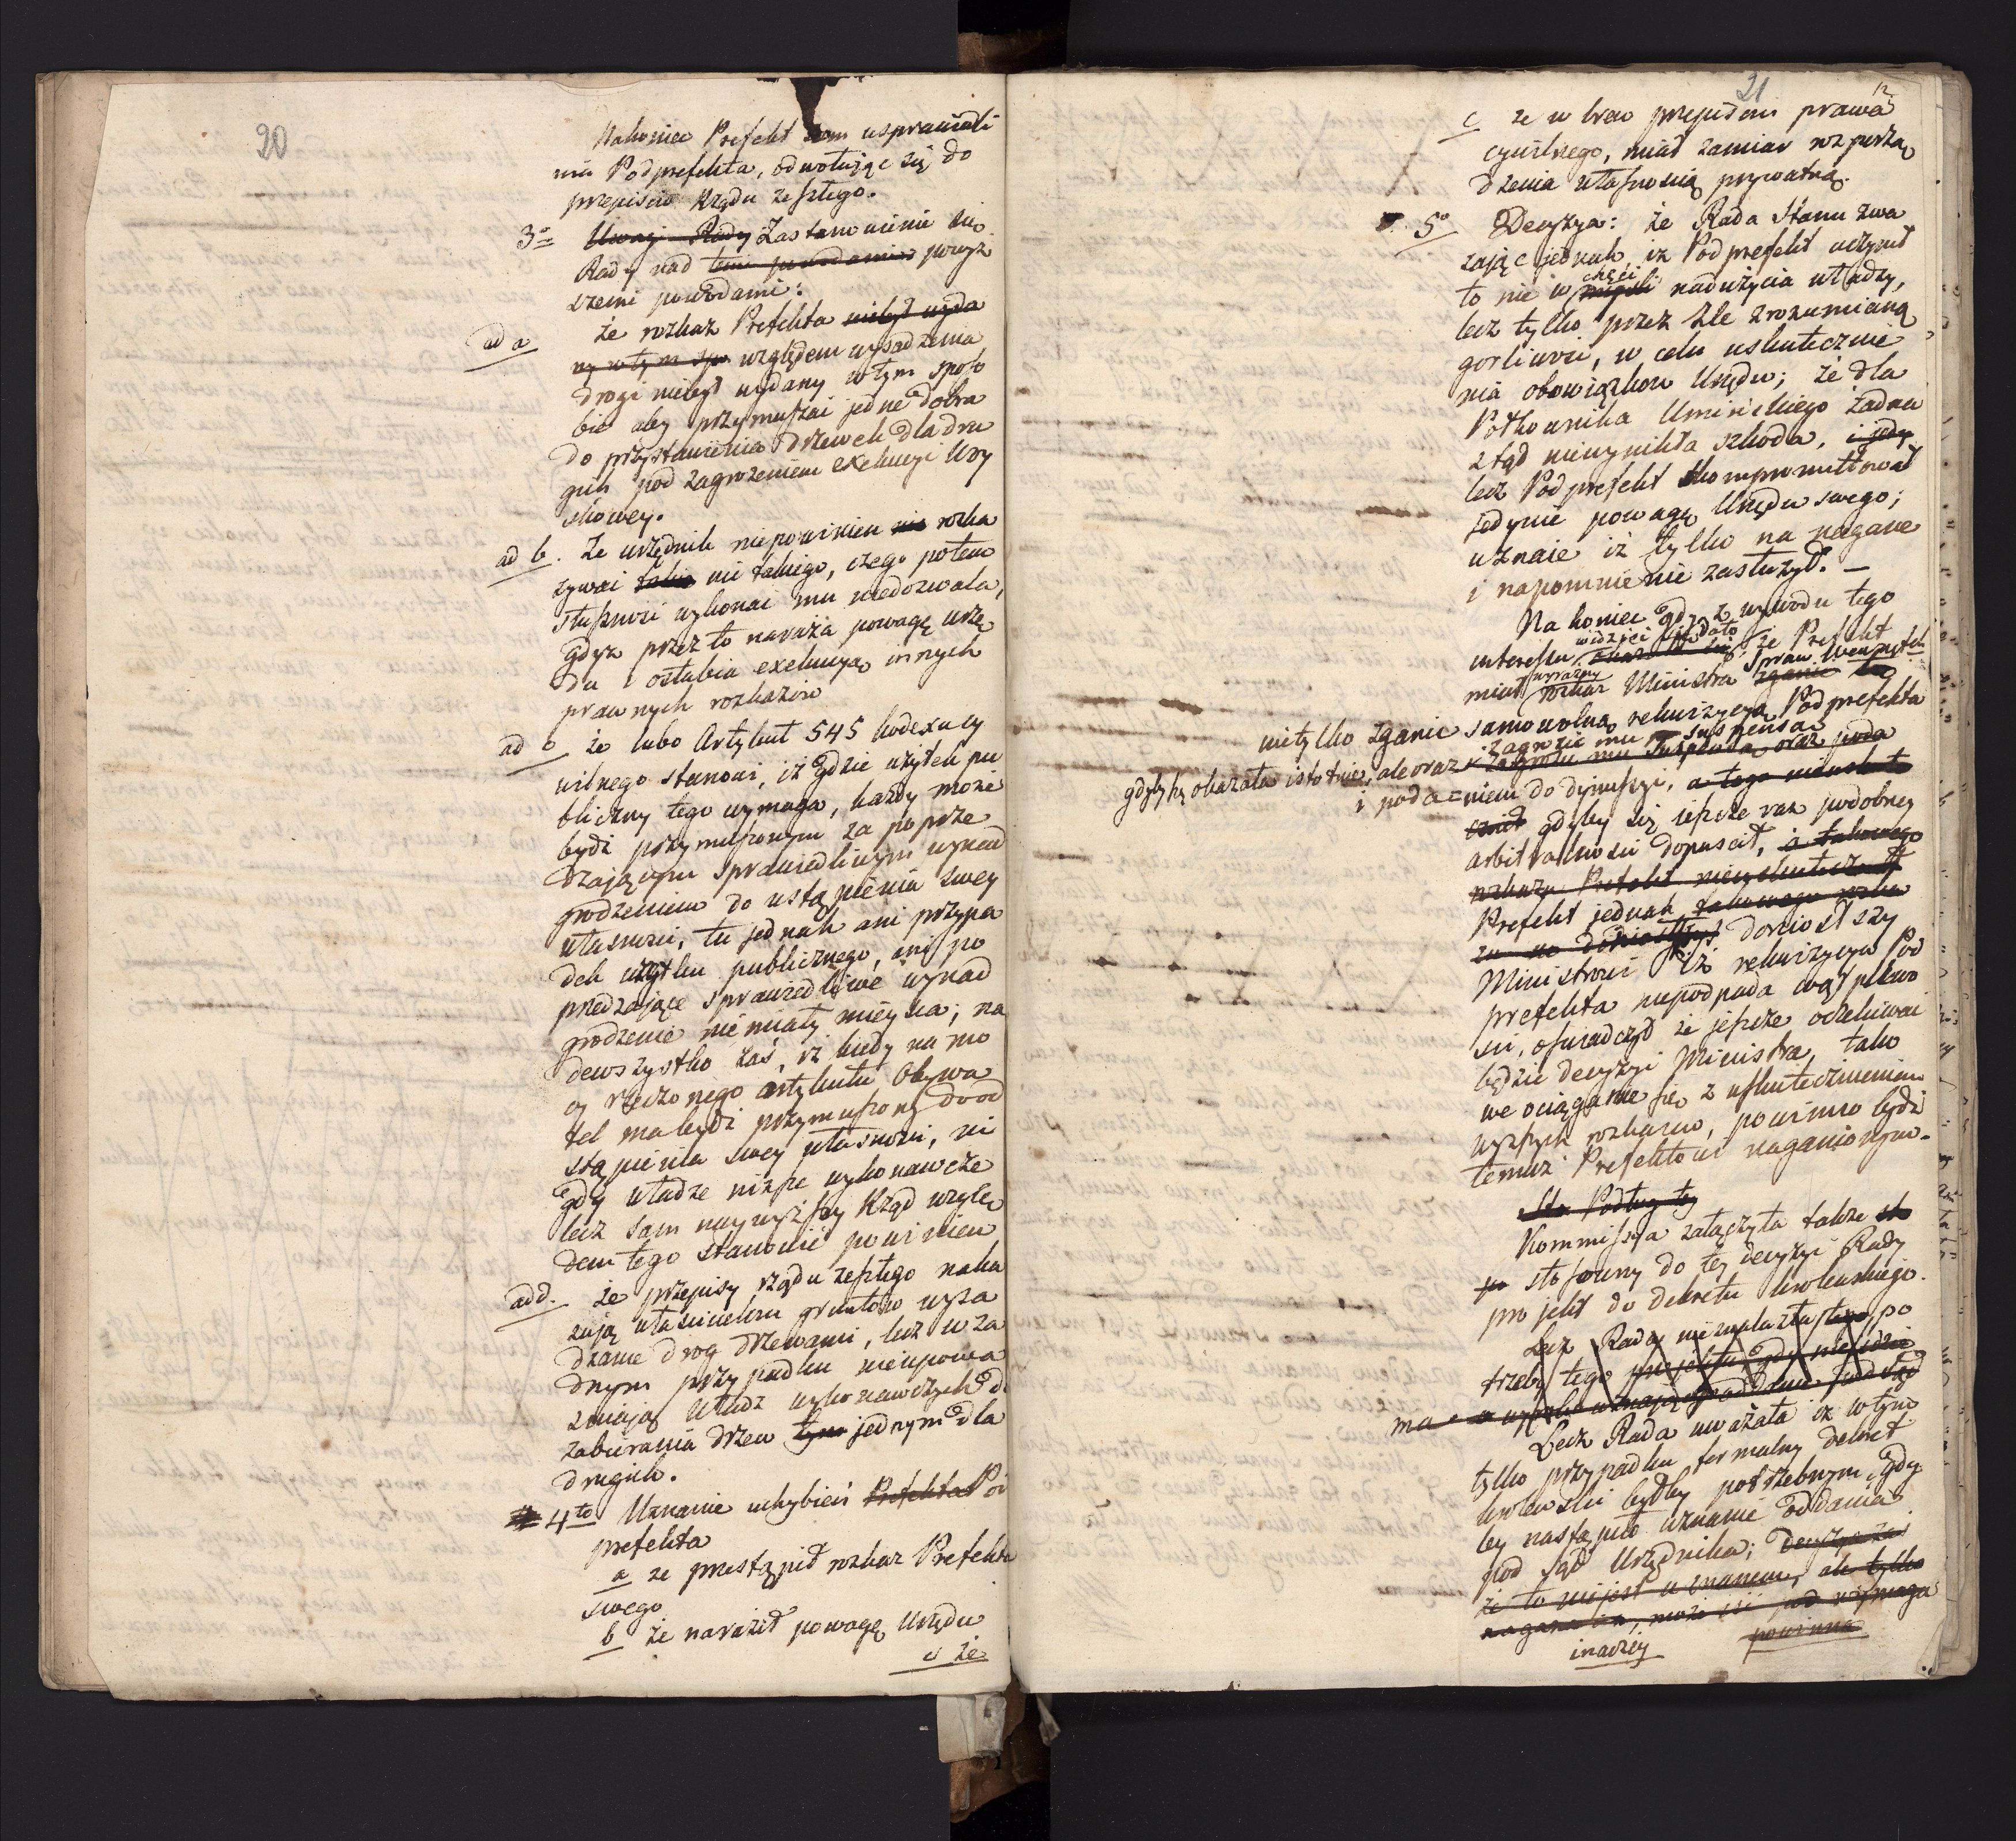 20
Nakoniec Prefekt sam usprawiedli
wia Podprefekta, odwołując się do
przepisów Rządu zeszłego.
3º Uwagi Rady Zastanowienie się
Rady nad temi powodami powyż
szemi powodami:
ad a że rozkaz Prefekta niebył wyda
ny w tym spo względem wysadzenia
drogi niebył wydany w tym sposo
bie aby przymuszać jedne dobra
do przystawienia drzewek dla dru
gich pod zagrożeniem exekucyi Woy
skowey.
ad b. Że urzędnik niepowinien nic rozka
zywać takie nic takiego, czego potem
słuszność wykonać mu niedozwala,
gdyż przez to naraża powagę urzę
du i osłabia exekucyą innych
prawnych rozkazów
ad c że lubo Artykuł 545 Kodexu cy
wilnego stanowi, iż gdzie użytek pu
bliczny tego wymaga, każdy może
bydź przymuszonym za poprze
dzającym sprawiedliwym wynad
grodzeniem do ustąpienia swey
własności, tu jednak ani przypa
dek użytku publicznego, ani po
przedzające sprawiedliwe wynad
grodzenie nie miały mieysca; na
dewszystko zaś, iż kiedy na mo
cy rzeczonego artykułu Obywa
tel ma bydź przymuszony do od
stąpienia swey własności, ni
gdy władze niższe wykonawcze
lecz sam naywyższy Rząd wzglę
dem tego stanowić powinien
ad d. że przepisy rządu zeszłego naka
zują właścicielom gruntów wysa
dzanie dróg drzewami, lecz w ża
dnym przypadku nieupowa
żniają Władz wykonawczych do
zabierania drzew tym jednym dla
drugich.
4to Uznanie uchybień Prefekta Pod
prefekta
a że przestąpił rozkaz Prefekta
swego
b że naraził powagę Urzędu
c że
21
12
c że w brew przepisom prawa
cywilnego, miał zamiar rozporzą
dzenia własnością prywatną.
5º Decyzya: że Rada Stanu zwa
żając jednak, iż Podprefekt uczynił
chęci
to nie w myśli nadużycia władzy,
lecz tylko przez źle zrozumianą
gorliwość, w celu uskutecznie
nia obowiązków Urzędu; że dla
Półkownika Umińskiego żadna
ztąd niewynikła szkoda, i jedy
lecz Podprefekt skompromittował
jedynie powagę Urzędu swego;
uznaie iż tylko na naganę
i napomnienie zasłużył. —
Na koniec gdy z wywodu tego
widzieć się dało
interessu okazało się, że Prefekt
wyraźny Spraw Wewnętrz
miał rozkaz Ministra zganić
nietylko zganić samowolną rekwizycyą Podprefekta
zagrozić mu suspensą
gdyby się okazała istotnie, ale oraz zagrozić mu suspensą oraz poda
i poda=niem do dymissyi, a tego nieusku
cznił gdyby się ieszcze raz podobney
arbitralności dopuścił, a takowego
rozkazu Prefekt nieuskutecznił
Prefekt jednak takowego rozka
zu nie doniosłszy doniosłszy
Ministrowi iż rekwizycya Pod
prefekta niepodpada wątpliwo
ści, oświadczył że jeszcze oczekiwać
będzie decyzyi Ministra, tako
we ociąganie się z uskutecznieniem
wyższych rozkazów, powinno bydź
temuż Prefektowi naganionym.
Sta Podług tey
Kommissya załączyła także sto
so stosowny do tey decyzyi Rady
projekt do dekretu królewskiego.
Lecz Rada nieznalazła po
trzeby tego projektu gdy nie
ma
Lecz Rada uważała iż w tym
tylko przypadku formalny dekret
królewski byłby potrzebnym, gdy
by nastąpiło uznanie oddania
pod Sąd Urzędnika; Decyzya zaś
że to nie jest uznaniem, ale tylko
inaczey powinna